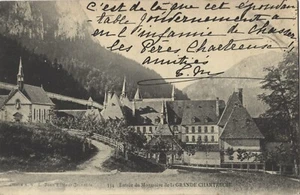 C'est de là que cet épouvan
table Gouvernement a
eu l'infamie de chasser
les Pères Chartreux
amitiés
154 Entrée du Monastère de la GRANDE CHARTREUSE